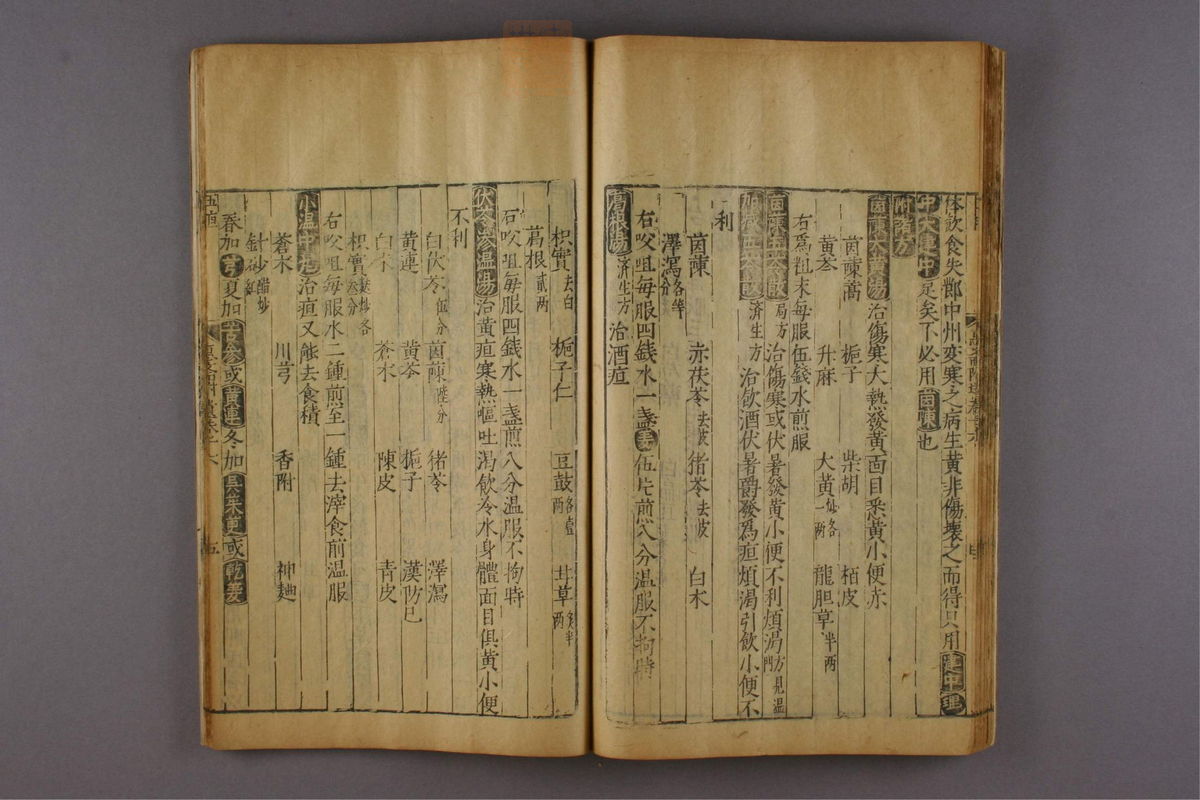 体飲食失節中州变寒之病生黄非傷壊之而得只用建中理
中大建中足矣不必用茵蔯也
附諸方
茵蔯大黄湯治傷寒大熱發黄面目悉黄小便赤
茵蔯蒿 栀子 柴胡 栢皮
黄芩 升麻 大黄炒各一兩 龍胆草半兩
右爲粗末每服伍錢水煎服
茵蔯五苓散局方治傷寒或伏暑發黄小便不利煩渴方見温門
加减五苓散済生方治飲酒伏暑爵發爲疸煩渴引飲小便不
利
茵蔯 赤茯苓去皮 猪苓去皮 白术
澤瀉各等分
右㕮咀每服四錢水一盏姜伍片煎八分温服不拘時
葛根湯済生方治酒疸
枳實去白 栀子仁 豆鼓各壹兩 甘草各半兩
葛根貳兩
右㕮咀每服四錢水一盏煎八分温服不拘時
伏苓滲温湯治黄疸寒熱嘔吐渴飲冷水身體面目俱黄小便
不利
白伏苓伍分 茵蔯陸分 猪苓 澤瀉
黄連 黄芩 栀子 漢防巳
白术 蒼术 陳皮 青皮
枳實麸炒各叁分
右㕮咀每服水二鍾煎至一鍾去滓食前温服
小温中丸治疸又能去食積
蒼术 川芎 香附 神麯
針砂醋炒紅
春加芎夏加苦参或黄連冬加吴茱萸或乾姜
五疸
五